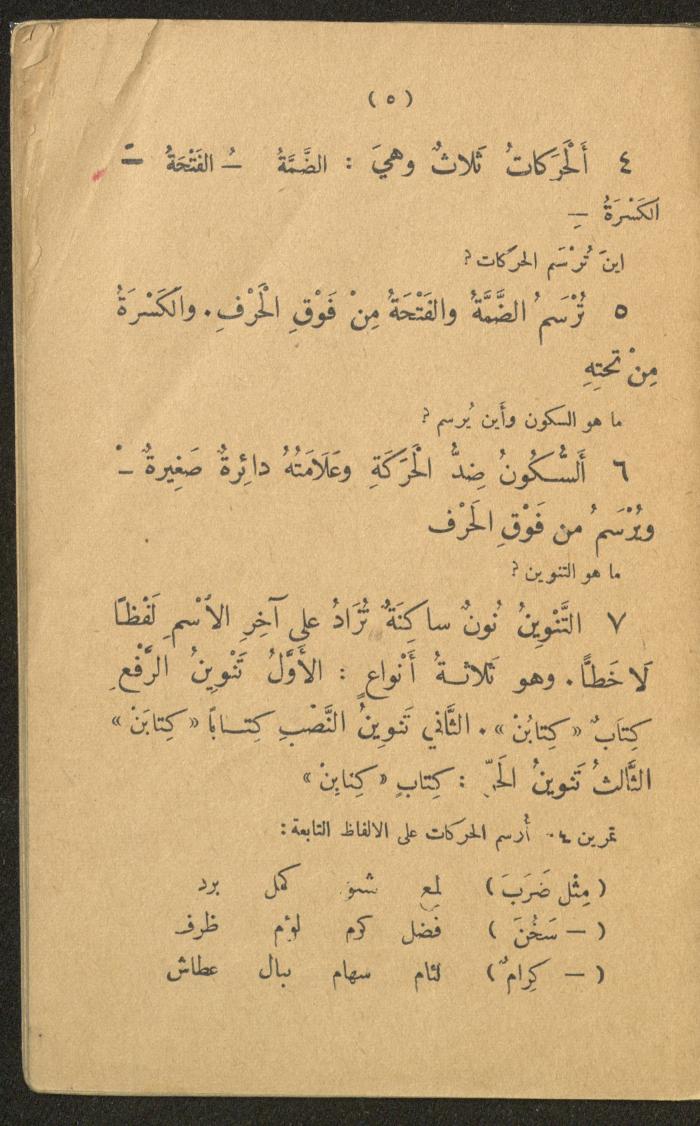 ( ٥ )
٤ أَلْحَرَكَاتُ ثَلاثٌ وهيَ : الضَّمَّةُ ـُ الفَتْحَةُ ـَ
الكَسْرَةُ ـِ
اينَ تُرْسَم الحركات؟
٥ تُرْسَمُ الضَّمَّةُ والفَتْحَةُ مِنْ فَوْقِ الْحَرْفِ. والكَسْرَةُ
مِنْ تحتِهِ
ما هو السكون وأَين يُرسم؟
٦ أَلسُّكُونُ ضِدُّ الْحَرَكَةِ وعَلَامَتُهُ دائِرةٌ صَغِيرةٌ ـْ
ويُرْسَمُ من فَوْقِ الحَرْف
ما هو التنوين؟
٧ التَّنْوِينُ نُونٌ ساكِنَةٌ تُزَادُ على آخِرِ الأسْمِ لَفْظاً
لَا خَطاًّ. وهو ثَلاثـةُ أَنْواعٍ : الأَوَّلُ تَنْوِينُ الرَّفْعِ
كِتَابٌ « كِتابُنْ ». الثَّاني تَنوِينُ النَّصْبِ كِتـاباً « كِتابَنْ »
الثَّالثُ تَنوينُ الجَرِّ : كِتابٍ « كِتابِنْ »
تمرين ٤. أُرسم الحركات على الالفاظ التابعة:
( مِثْل ضَرَبَ ) لمع كمل برد
( — سَخُنَ ) فضل كرم لؤم ظرف
( — كِرامٌ ) لئام سهام عطاش